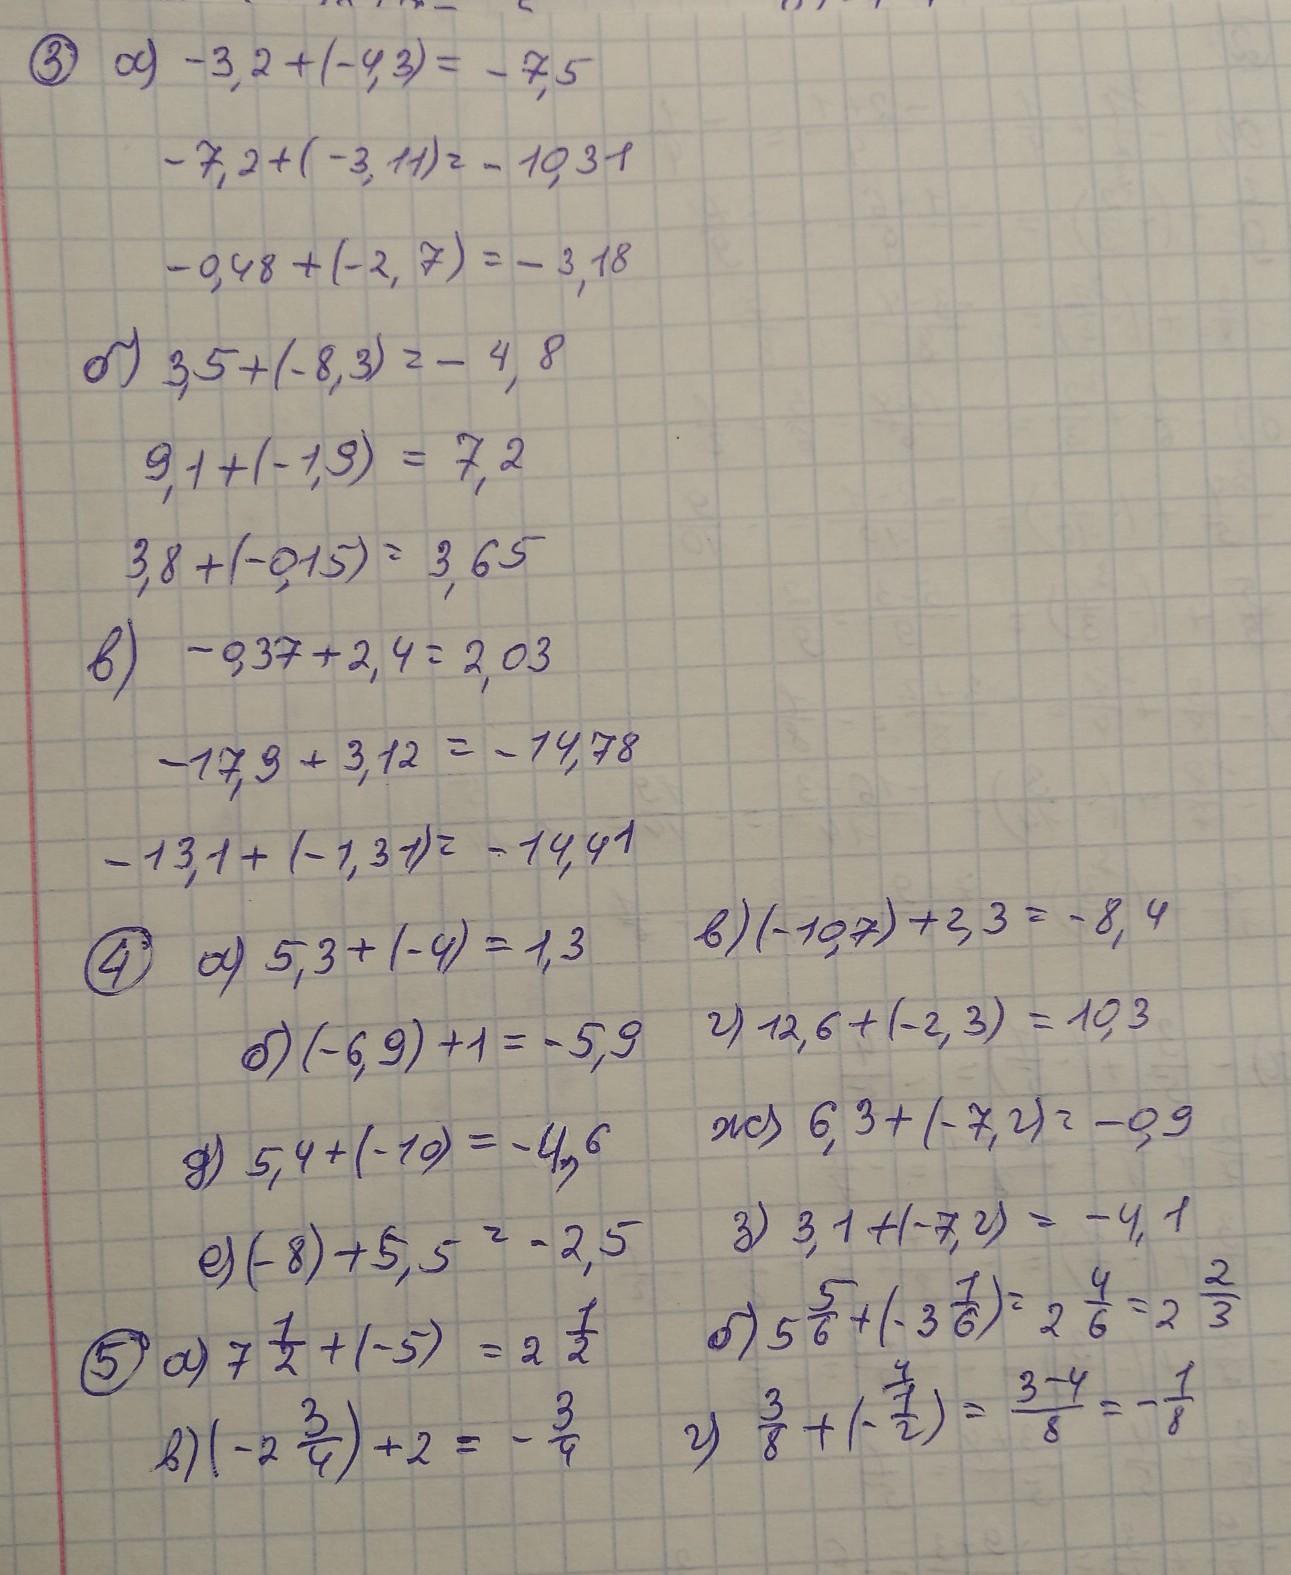 ③ а) -3,2+(-4,3)= -7,5
-7,2+(-3,11)= -10,31
-0,48+(-2,7)=-3,18
б) 3,5+(-8,3)=-4,8
9,1+(-1,9) = 7,2
3,8+(-0,15)= 3,65
в) -0,37+2,4=2,03
-17,9+3,12 = -14,78
-13,1+(-1,31)= -14,41
④ а) 5,3+(-4)=1,3
в) (-10,7)+2,3=-8,4
б) (-6,9)+1=-5,9
г) 12,6+(-2,3)=10,3
д) 5,4+(-10)=-4,6
ж) 6,3+(-7,2)=-0,9
е) (-8)+5,5=-2,5
з) 3,1+(-7,2) = -4,1
⑤ а) 7 1/2+(-5) = 2 1/2
б) 5 5/6+(-3 1/6)= 2 4/6=2 2/3
в) (-2 3/4)+2 = -3/4
г) 3/8+(-1/2) = 3-4/8 = -1/8